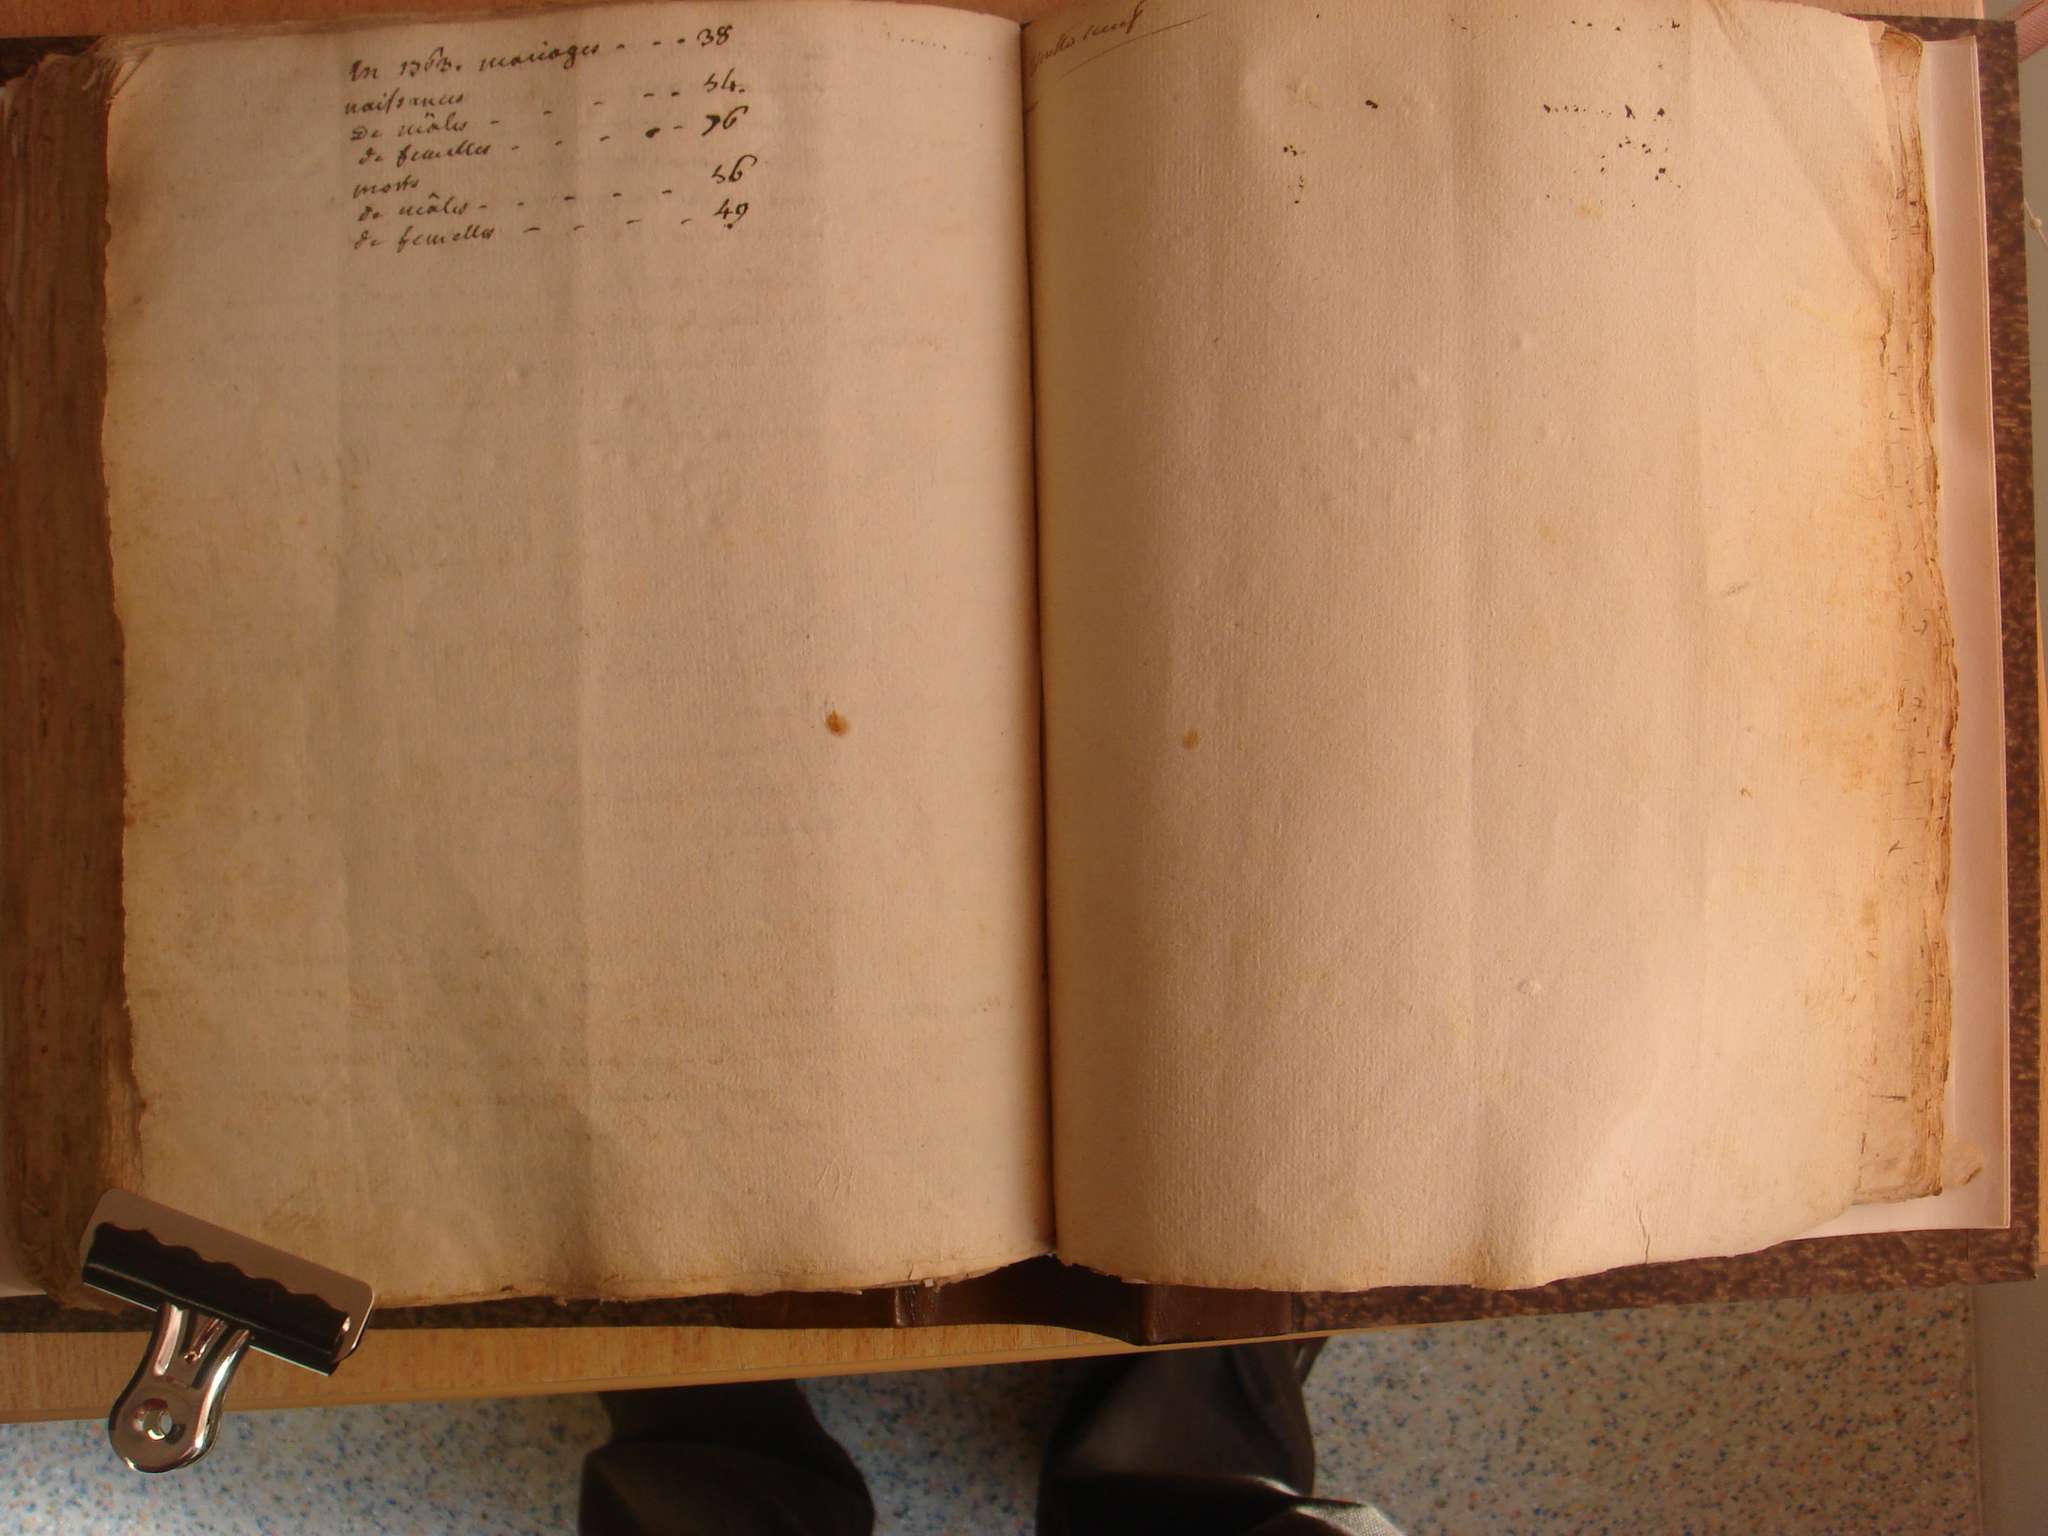 En 1763. mariages - - - 38
naissances
De mâles - - - - - 54.
de femelles - - - - - 76
morts
de mâles - - - - - 56
de femelles - - - - 49
neuf